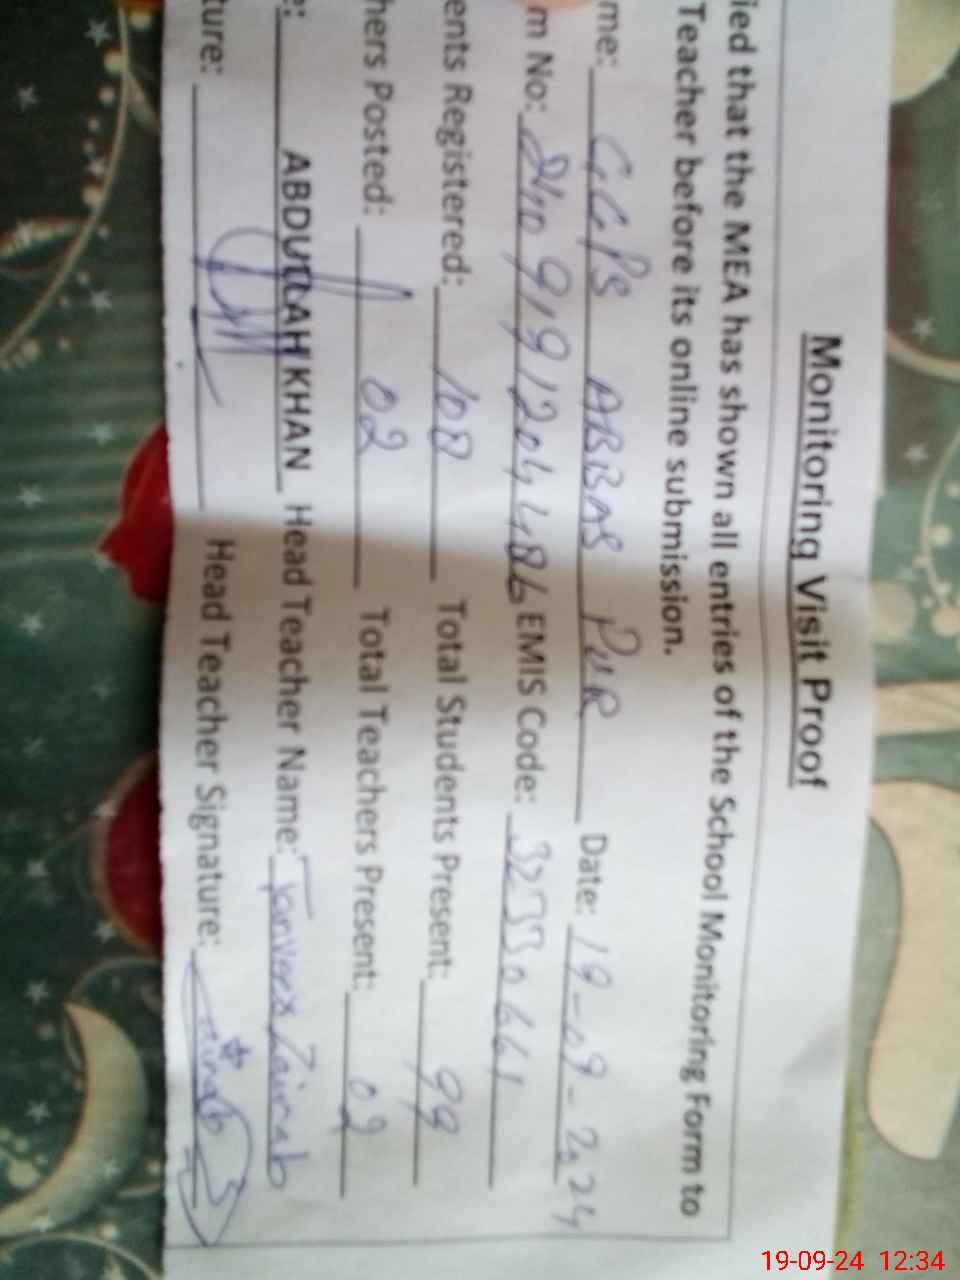 Monitoring Visit Proof
ied that the MEA has shown all entries of the School Monitoring Form to
Teacher before its online submission.
me: GGPS ABBAS PUR Date: 19-09-2024
m No: 919120 EMIS Code: 32330661
ents Registered: 108 Total Students Present: 99
hers Posted: 02 Total Teachers Present: 02
e: ABDULLAH KHAN Head Teacher Name: Zainab
ture: Head Teacher Signature:
19-09-24 12:34